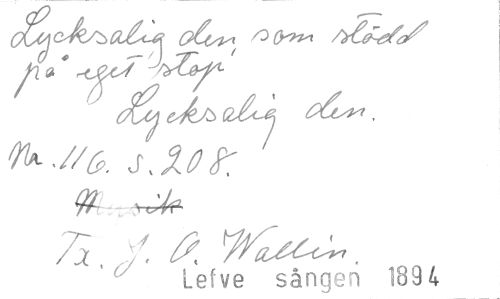 Lycksalig den, som stödd
på eget stop
Lycksalig den.
Nr. 116. s. 208.
Musik
Tx. J. O. Wallin.
Lefve sången 1894